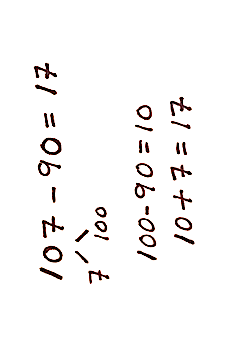 107 - 90 = 17
7 100
100-90=10
10+7=17